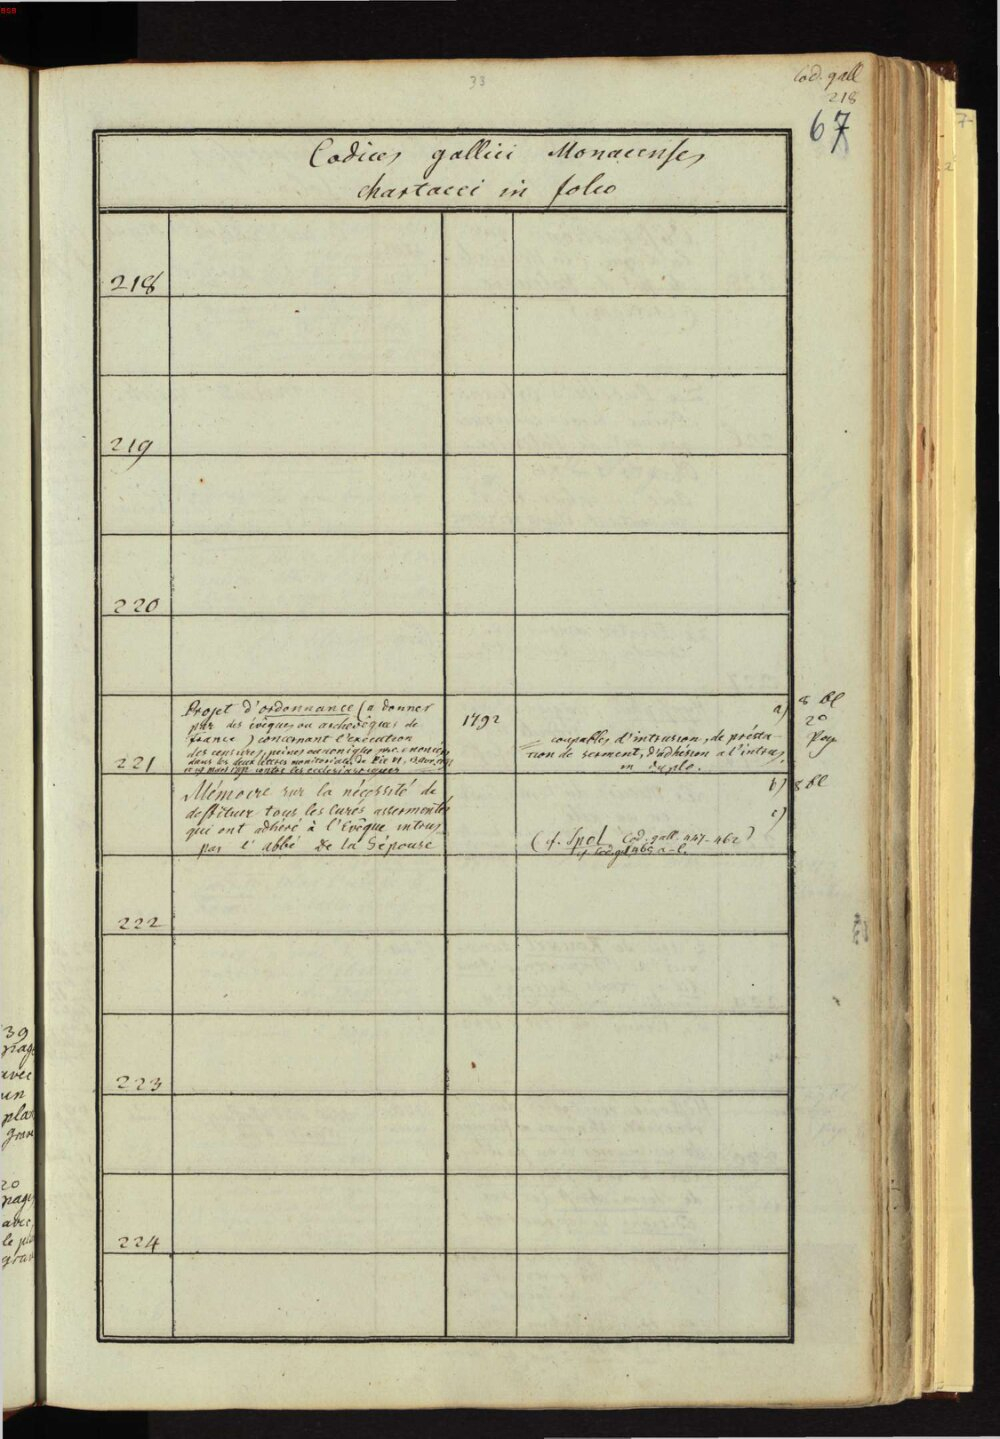 BSB
33
Cod. gall
218
67
Codices gallici Monacenses
chartacei in folio
218
219
220
Projet d'ordonnance (a donner
par des évêques ou archevêques de
France) concernant l'exécution
des censures, peines canoniques
dans les deux lettres monitoriales de Pie VI, 13 avr. 1791
et 19 mars 1792 contre les ecclésiastiques
221
1792
a)
= coupables d'intrusion, de presta-
tion de serment, d'adhésion a l'intrus,
in duplo.
8 bl
2o
Pap
Mémoire sur la nécessité de
destituer tous les Curés assermentés
qui ont adhéré à l'Evêque intrus
par l'abbé De la
b) 8 bl
c)
(cf. Spol Cod. gall. 447-462)
cf Cod. gall 465 a-l.
222
223
224
39
pag
avec
un
plan
grav
20
pag
avec
le pla
grav